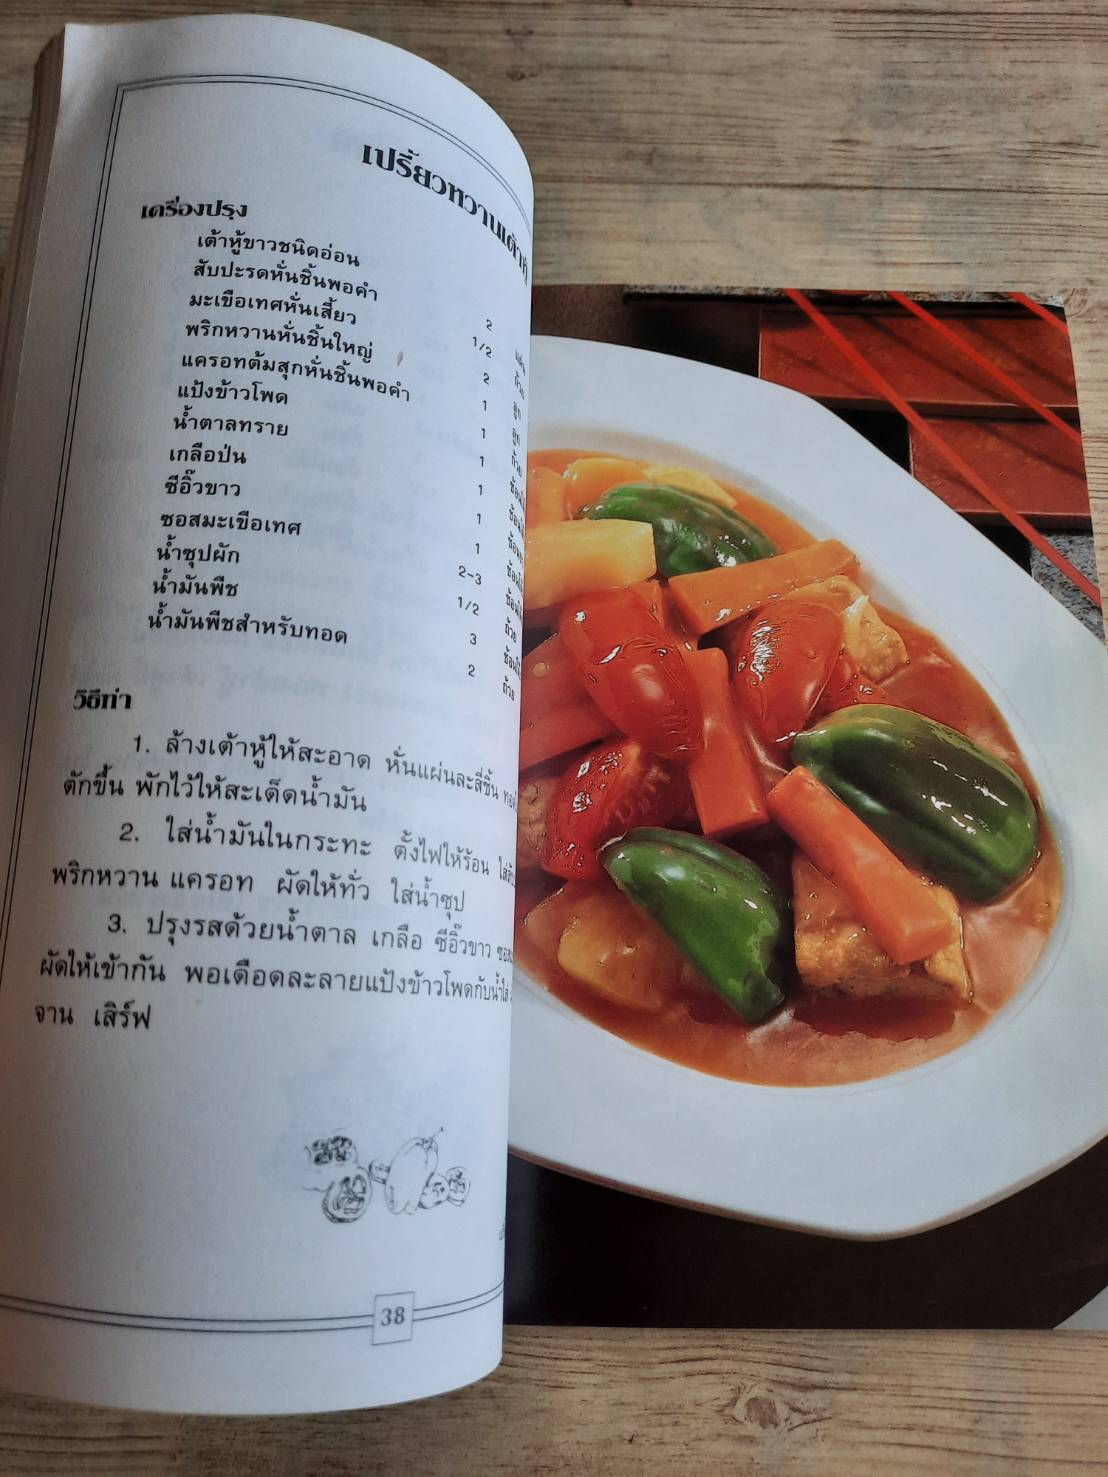 เปรี้ยวหวานเต้าหู้
เครื่องปรุง
เต้าหู้ขาวชนิดอ่อน 2
สับปะรดหั่นชิ้นพอคำ 1/2 ถ้วย
มะเขือเทศหั่นเสี้ยว 2 ลูก
พริกหวานหั่นชิ้นใหญ่ 1 ลูก
แครอทต้มสุกหั่นชิ้นพอคำ 1 ถ้วย
แป้งข้าวโพด 1
น้ำตาลทราย 1
เกลือป่น 1
ซีอิ๊วขาว 1
ซอสมะเขือเทศ 2-3
น้ำซุปผัก 1/2 ถ้วย
น้ำมันพืช 3
น้ำมันพืชสำหรับทอด 2 ถ้วย
วิธีทำ
1. ล้างเต้าหู้ให้สะอาด หั่นแผ่นละสี่ชิ้น
ตักขึ้น พักไว้ให้สะเด็ดน้ำมัน
2. ใส่น้ำมันในกระทะ ตั้งไฟให้ร้อน
พริกหวาน แครอท ผัดให้ทั่ว ใส่น้ำซุป
3. ปรุงรสด้วยน้ำตาล เกลือ ซีอิ๊วขาว
ผัดให้เข้ากัน พอเดือดละลายแป้งข้าวโพดกับน้ำใส่
จาน เสิร์ฟ
38